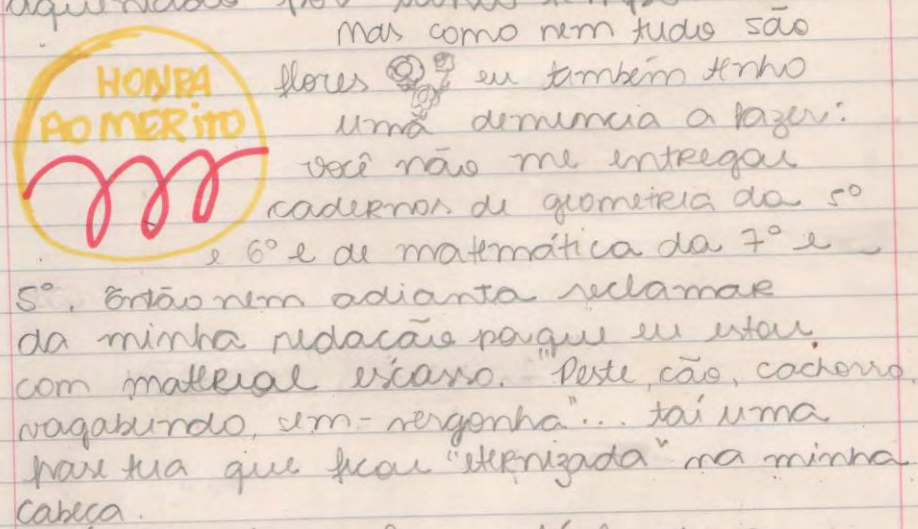 mas como nem tudo são
flores eu também tenho
HONRA
AO MERITO
uma denuncia a fazer:
você não me entregou
cadernos de geometria da 5º
e 6º e de matemática da 7º e
5º. Então nem adianta reclamar
da minha redacão porque eu estou
com material escasso. "Peste, cão, cachorro,
vagabundo, sem-vergonha"... taí uma
frase tua que ficou "eternizada" na minha
cabeca.